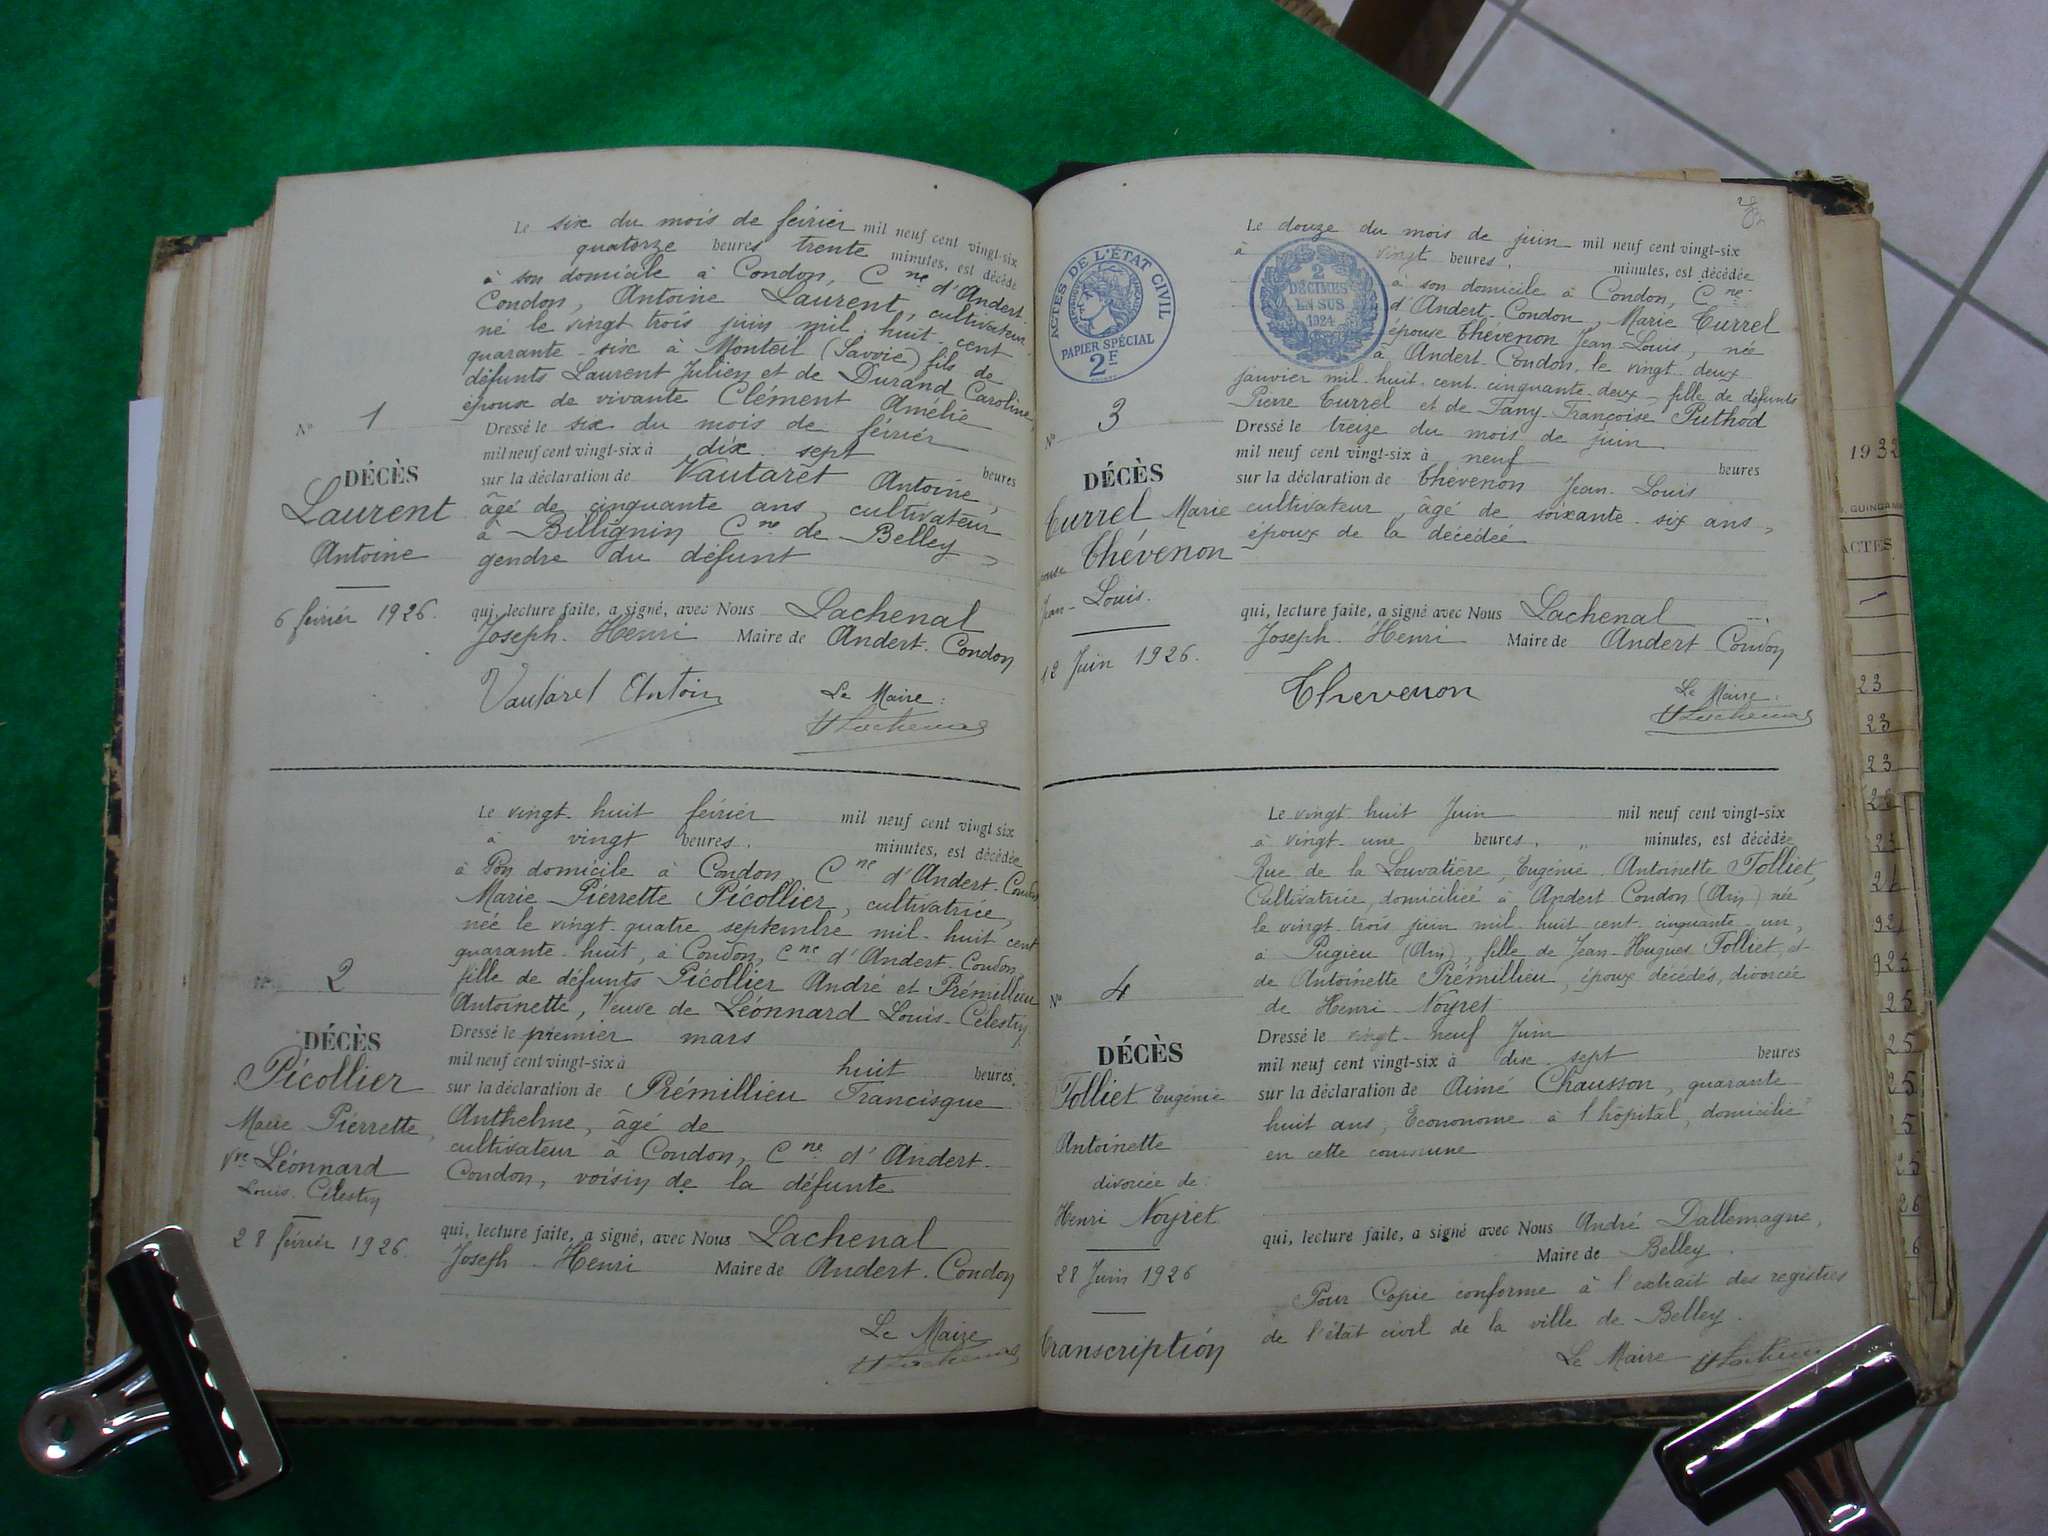 Le six du mois de février mil neuf cent vingt-six
quatorze heures trente minutes, est décédé
à son domicile à Condon, Cne d'Andert
Condon, Antoine Laurent, cultivateur
né le vingt trois juin mil huit cent
quarante-six à Monteil (Savoie) fils de
défunts Laurent Julien et de Durand Caroline,
époux de vivante Clément Amélie
Nº 1
Dressé le six du mois de février
mil neuf cent vingt-six à dix sept heures
DÉCÈS
sur la déclaration de Vautaret Antoine,
Laurent
âgé de cinquante ans, cultivateur
à Billignin Cne de Belley,
Antoine
gendre du défunt
6 février 1926.
qui, lecture faite, a signé, avec Nous Lachenal
Joseph-Henri Maire de Andert-Condon
Vautaret Antoin
Le Maire:
HLachenal
Le vingt-huit février mil neuf cent vingt six
à vingt heures, minutes, est décédée
à son domicile à Condon, Cne d'Andert-Condon
Marie Pierrette Picollier, cultivatrice,
née le vingt-quatre septembre mil-huit cent
quarante-huit, à Condon, Cne d'Andert-Condon,
fille de défunts Picollier André et Prémillieu
Nº 2
Antoinette, Veuve de Léonnard Louis-Célestin
DÉCÈS
Dressé le premier mars
mil neuf cent vingt-six à huit heures,
Picollier
sur la déclaration de Prémillieu Francisque
Marie Pierrette,
Anthelme, âgé de
Vve Léonnard
cultivateur à Condon, Cne d'Andert-
Louis-Célestin
Condon, voisin de la défunte
28 février 1926.
qui, lecture faite, a signé, avec Nous Lachenal
Joseph-Henri Maire de Andert-Condon
Le Maire
HLachenal
Le douze du mois de juin mil neuf cent vingt-six
à vingt heures, minutes, est décédée
à son domicile à Condon, Cne
d'Andert-Condon, Marie Turrel
épouse Thévenon Jean-Louis, née
à Andert-Condon, le vingt-deux
janvier mil-huit-cent-cinquante-deux, fille de défunts
Pierre Turrel et de Fany-Françoise Puthod
ACTES DE L'ÉTAT CIVIL
PAPIER SPÉCIAL
2F
2
DÉCIMES
EN SUS
1924
Nº 3
Dressé le treize du mois de juin
mil neuf cent vingt-six à neuf heures
DÉCÈS
sur la déclaration de Thévenon Jean-Louis
Turrel Marie
cultivateur, âgé de soixante-six ans,
Thévenon
époux de la décédée
Jean-Louis.
12 Juin 1926.
qui, lecture faite, a signé avec Nous Lachenal
Joseph-Henri Maire de Andert Condon
Thevenon
Le Maire:
HLachenal
Le vingt-huit Juin mil neuf cent vingt-six
à vingt-une heures, " minutes, est décédée
Rue de la Louvatière, Eugénie Antoinette Folliet,
Cultivatrice, domiciliée à Andert Condon (Ain) née
le vingt-trois juin mil-huit cent cinquante-un,
à Pugieu (Ain), fille de Jean-Hugues Folliet, et
de Antoinette Prémillieu, époux décédés, divorcée
de Henri Noyret
Nº 4
Dressé le vingt-neuf Juin
DÉCÈS
mil neuf cent vingt-six à dix sept heures
Folliet Eugénie
sur la déclaration de Aimé Chausson, quarante
Antoinette
huit ans, Econome à l'hôpital, domicilié
divorcée de:
en cette commune
Henri Noyret
28 Juin 1926
qui, lecture faite, a signé avec Nous André Dallemagne,
Maire de Belley.
Transcription
Pour Copie conforme à l'extrait des registres
de l'état civil de la ville de Belley.
Le Maire
1932
ACTES
23
23
23